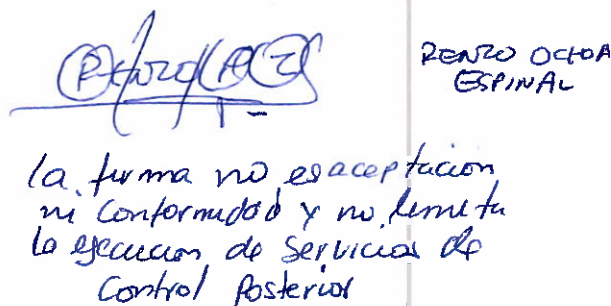 RENZO OCHOA
ESPINAL
la firma no es aceptacion
ni conformidad y no limita
la ejecucion de Servicios de
Control Posterior